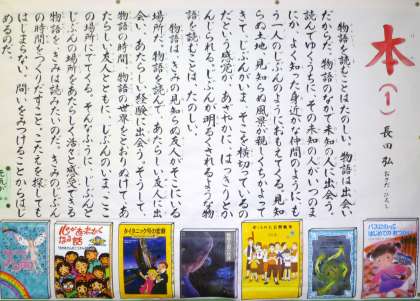 本
(1)
長田弘
おさだ ひろし
物語を読むことはたのしい。物語は出会い
だからだ。物語のなかで未知の人に出会う。
読んでゆくうちに、その未知の人がいつのま
にか、よく知った身近かな仲間のようにも、も
う一人のじぶんのようにおもえてくる。見知
らぬ土地、見知らぬ風景が親しくちかよって
きて、じぶんがいま、そこを横切っているの
だという感覚が、あざやかに、はっきりとか
んじられる。じぶんが明るくされるような物
語を読むことは、たのしい。
物語は、きみの見知らぬ友人がそこにいる
場所だ。物語を読んで、あたらしい友人に出
会い、あたらしい経験に出会う。そうして、
物語の時間、物語の世界をとおりぬけて、あ
たらしい友人とともに、じぶんのいま、ここ
の場所にでてくる。そんなふうに、じぶんの
いま、ここをあたらしく活き活きと感受できる
物語を、きみは読みたいのだ。きみのじぶん
の時間をつくりだすこと。こたえを探しても
はじまらない。問いをみつけることからはじ
めるのだ。
タイタニック号の悲劇
心があたたかくなる話
はじめてのおつかい